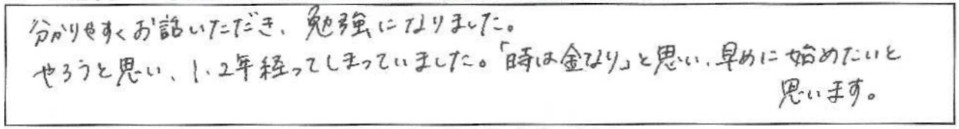 分かりやすくお話いただき、勉強になりました。
やろうと思い、1、2年経ってしまっていました。「時は金なり」と思い、早めに始めたいと
思います。